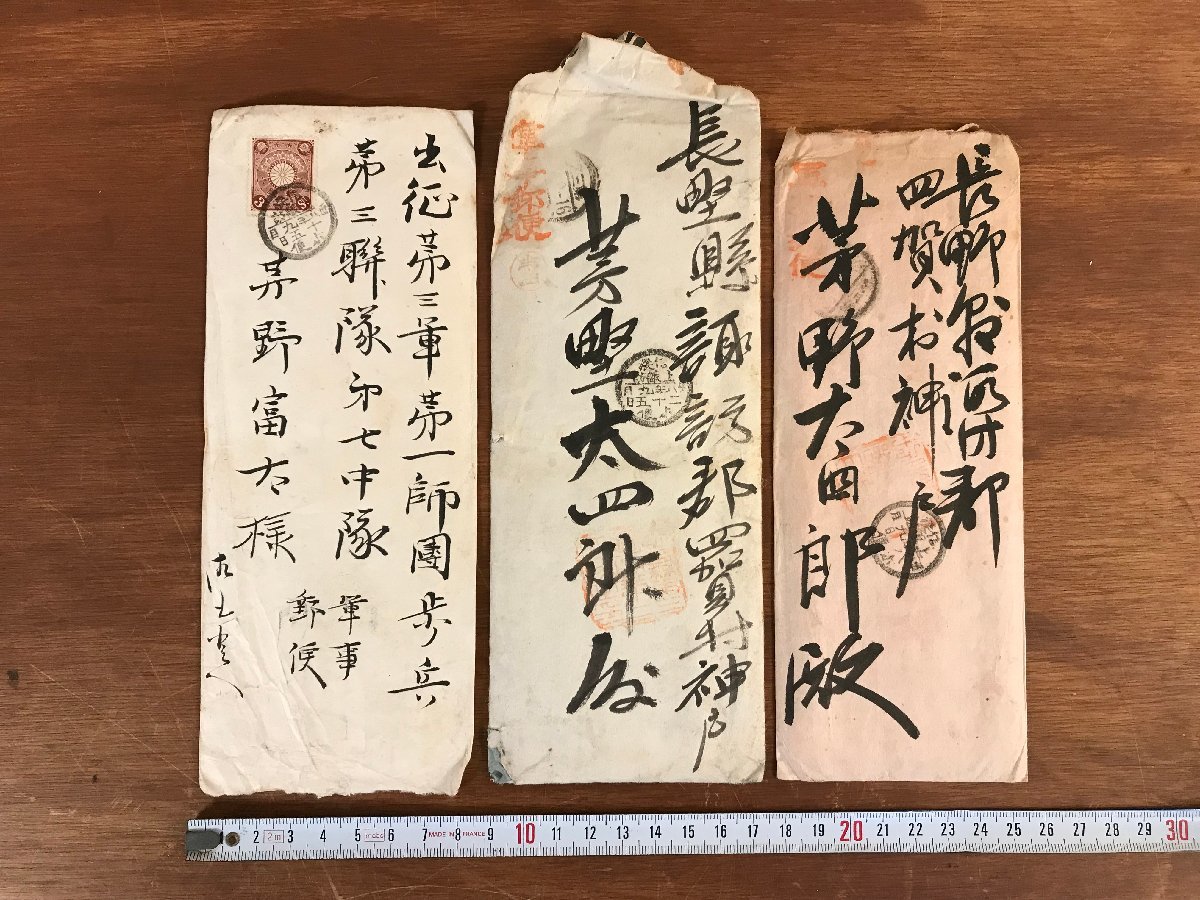 出征第三軍第一師團歩兵
第三聯隊第七中隊
軍事
郵便
茅野富太様
長野縣諏訪郡四賀村神戸
茅野太四郎殿
長野縣諏訪郡
四賀村神戸
茅野太四郎殿
郵便
二十五日
2 2m 3 4 5 6 7 MADE IN FRANCE 8 9 10 11 12 13 14 15 16 17 18 19 20 21 22 23 24 25 26 27 28 29 30